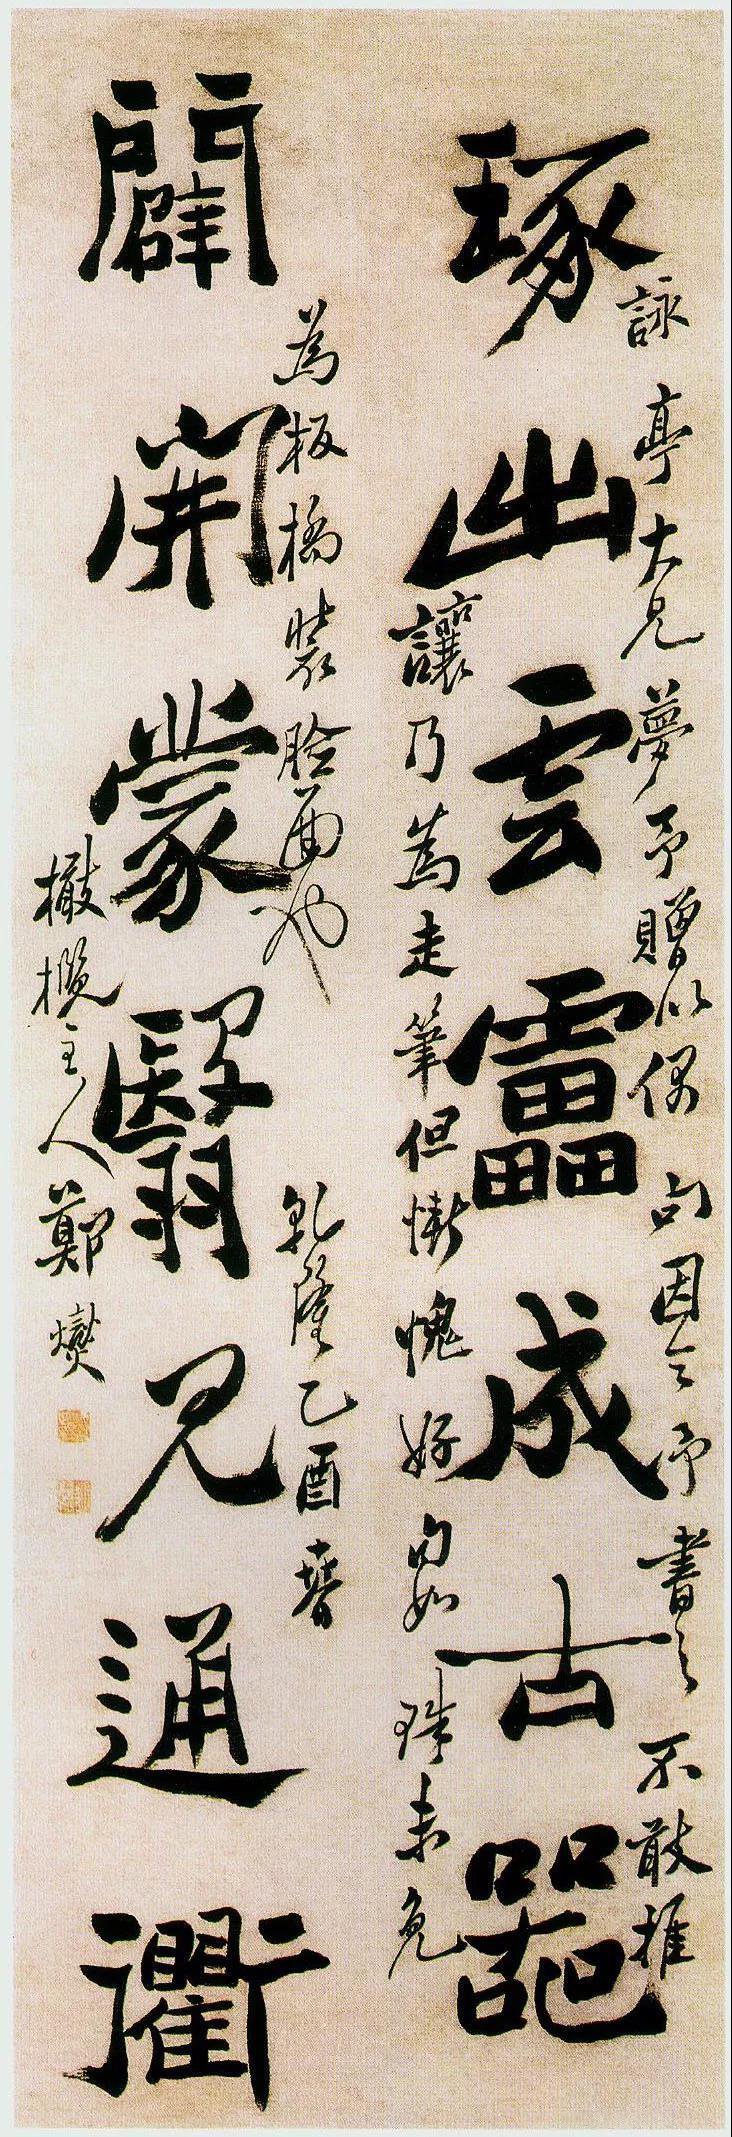 琢出雲雷成古器
闢開蒙翳見通衢
詠亭大兄夢予贈以偶句因令予書之不敢推
讓乃為走筆但慚愧好句如珠未免
為板橋裝臉面也
乾隆乙酉春
橄欖主人鄭燮